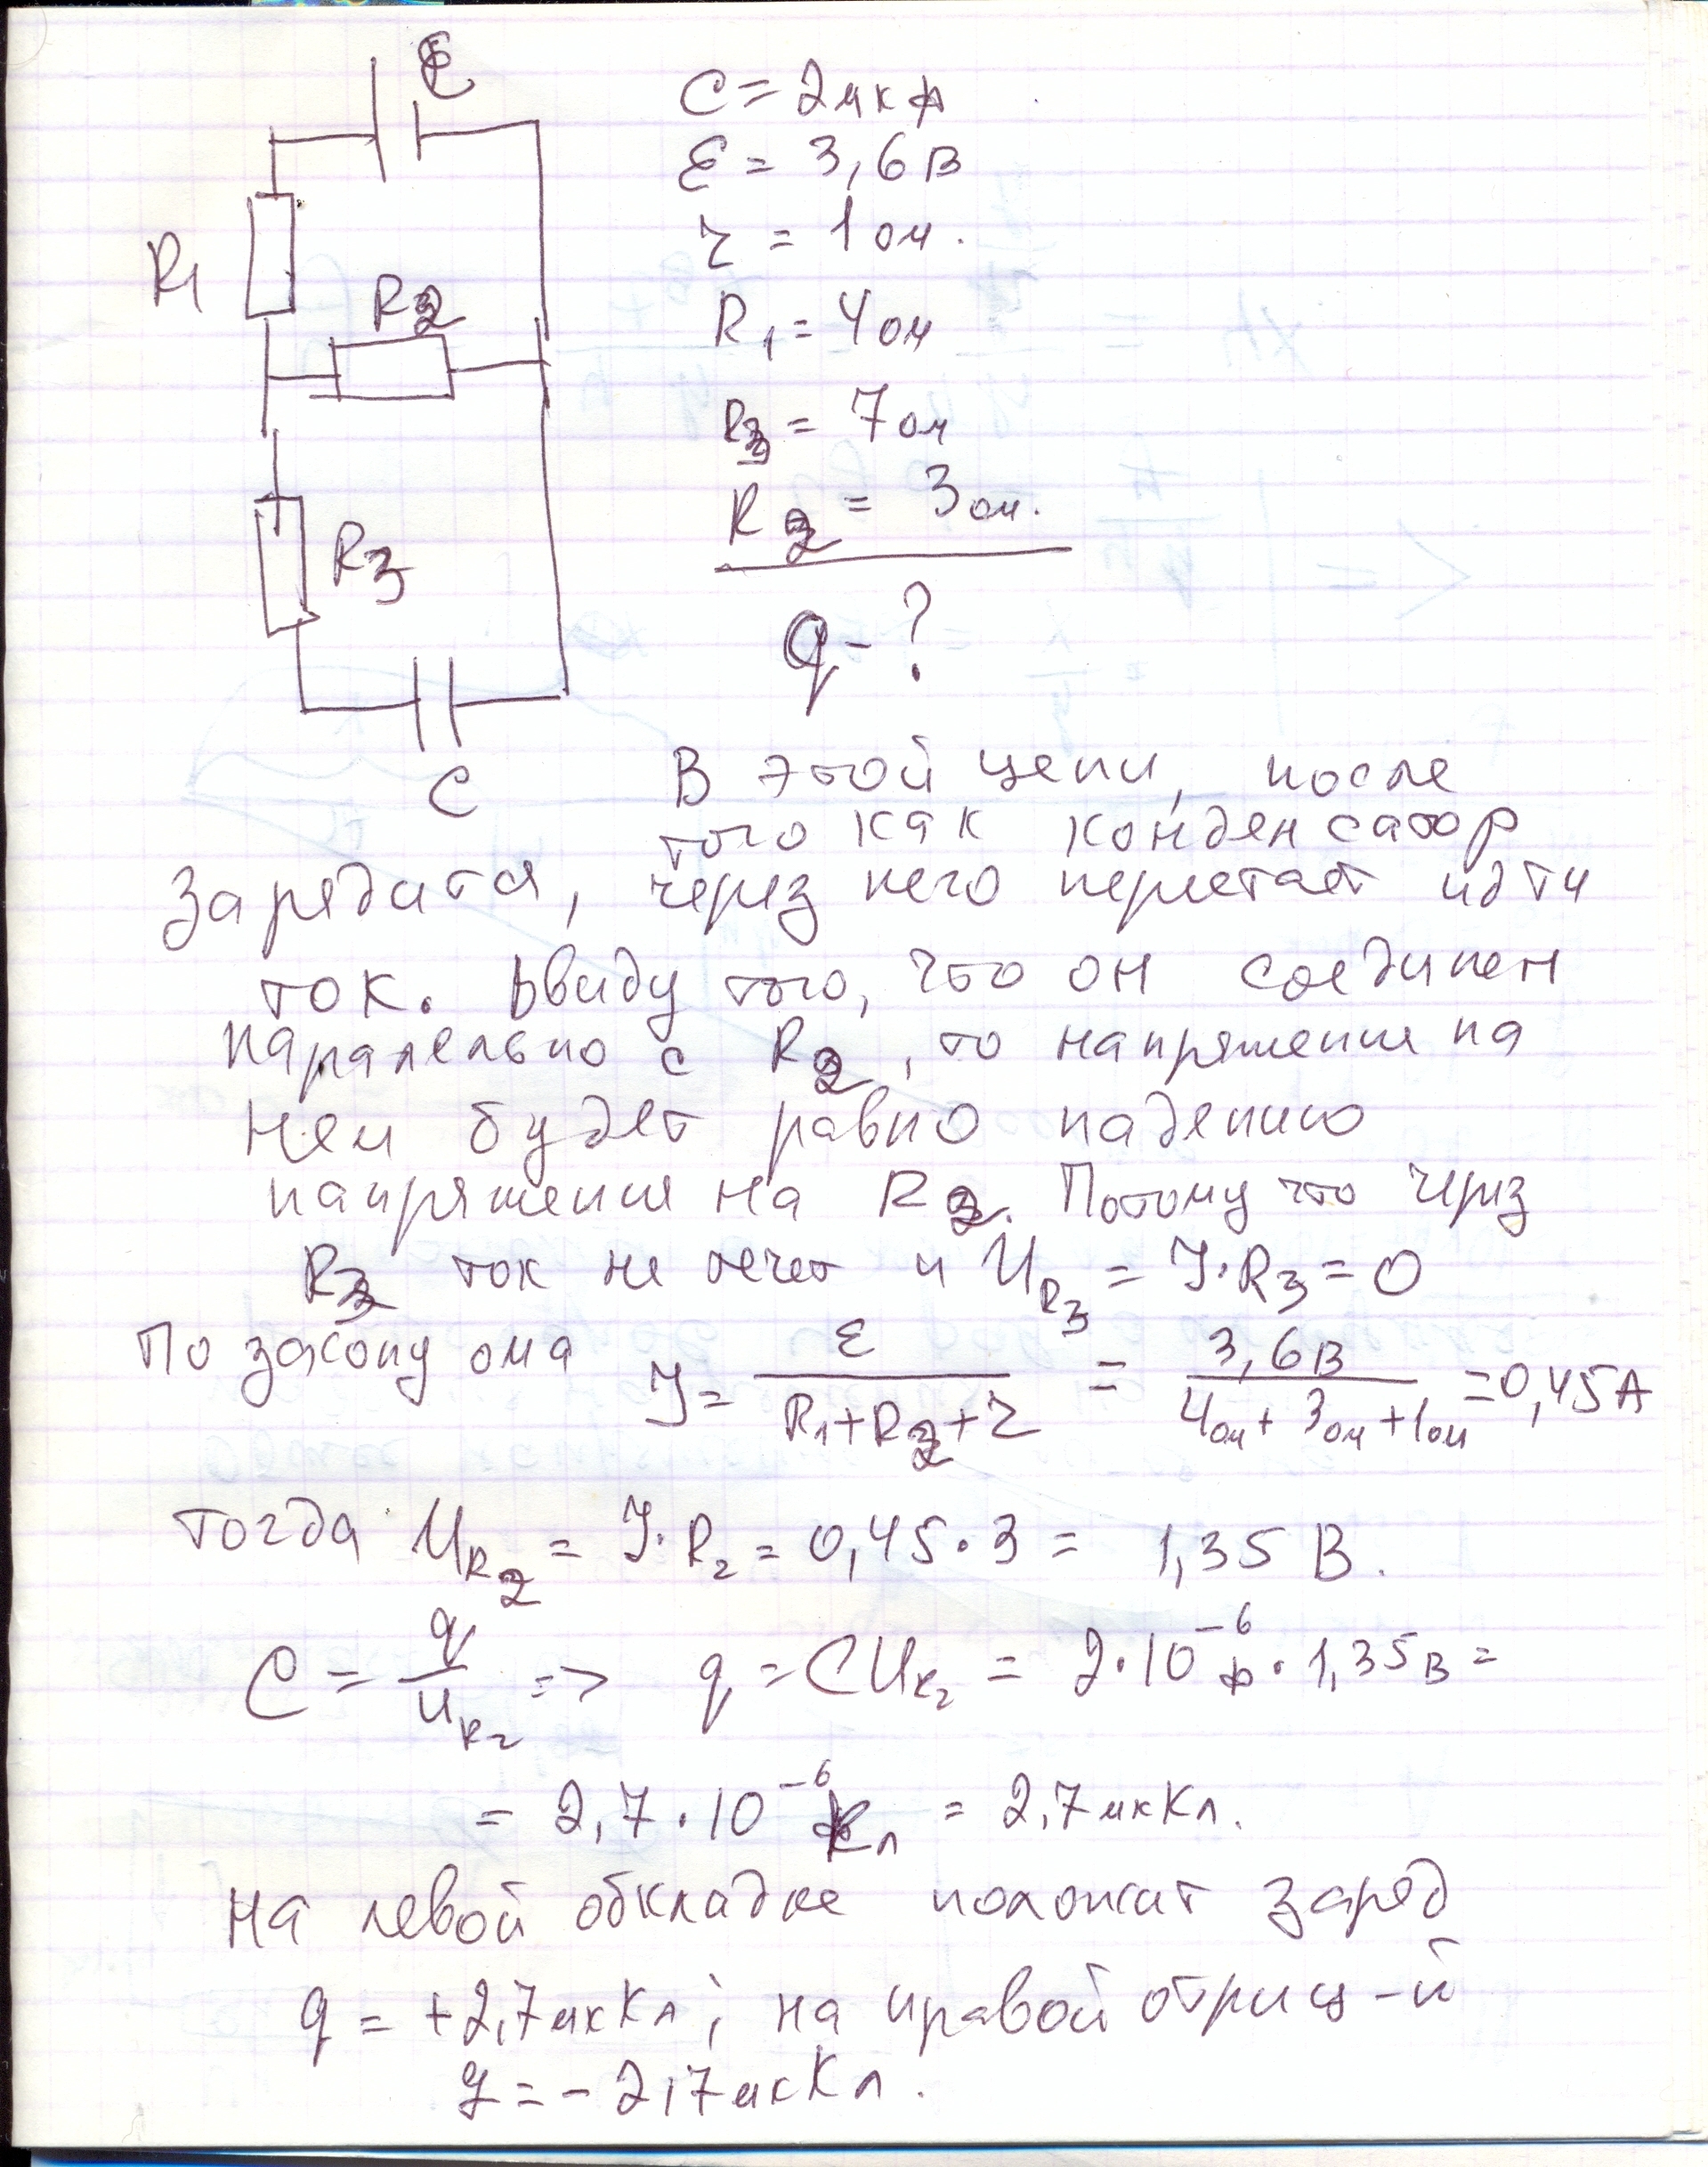 ε
R1
R2
R3
C
C = 2мкФ
ε = 3,6 В
r = 1 ом.
R1 = 4 ом
R3 = 7 ом
R2 = 3 ом.
q - ?
В этой цепи, после
того как конденсатор
зарядится, через него перестает идти
ток. Ввиду того, что он соединен
паралельно с R2, то напряжение на
нем будет равно падению
напряжения на R2. Потому что через
R3 ток не течет и UR3 = I·R3 = 0
По закону ома I = ε / (R1+R2+r) = 3,6 В / (4ом + 3ом + 1ом) = 0,45 А
тогда UR2 = I·R2 = 0,45·3 = 1,35 В.
C = q / UR2 => q = CUR2 = 2·10⁻⁶ ф · 1,35 В =
= 2,7·10⁻⁶ Кл = 2,7 мкКл.
На левой обкладке положит заряд
q = +2,7 мкКл; на правой отриц-й
q = -2,7 мкКл.